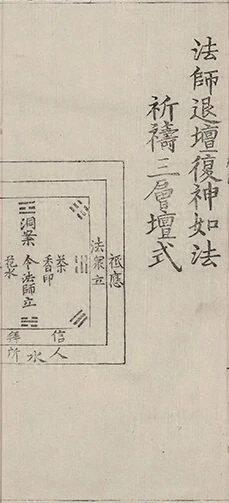 法師退壇復神如法
祈禱三層壇式
祗應
法眾立
茶
香印
令法師立
洞案
花水
信人
水
拜所